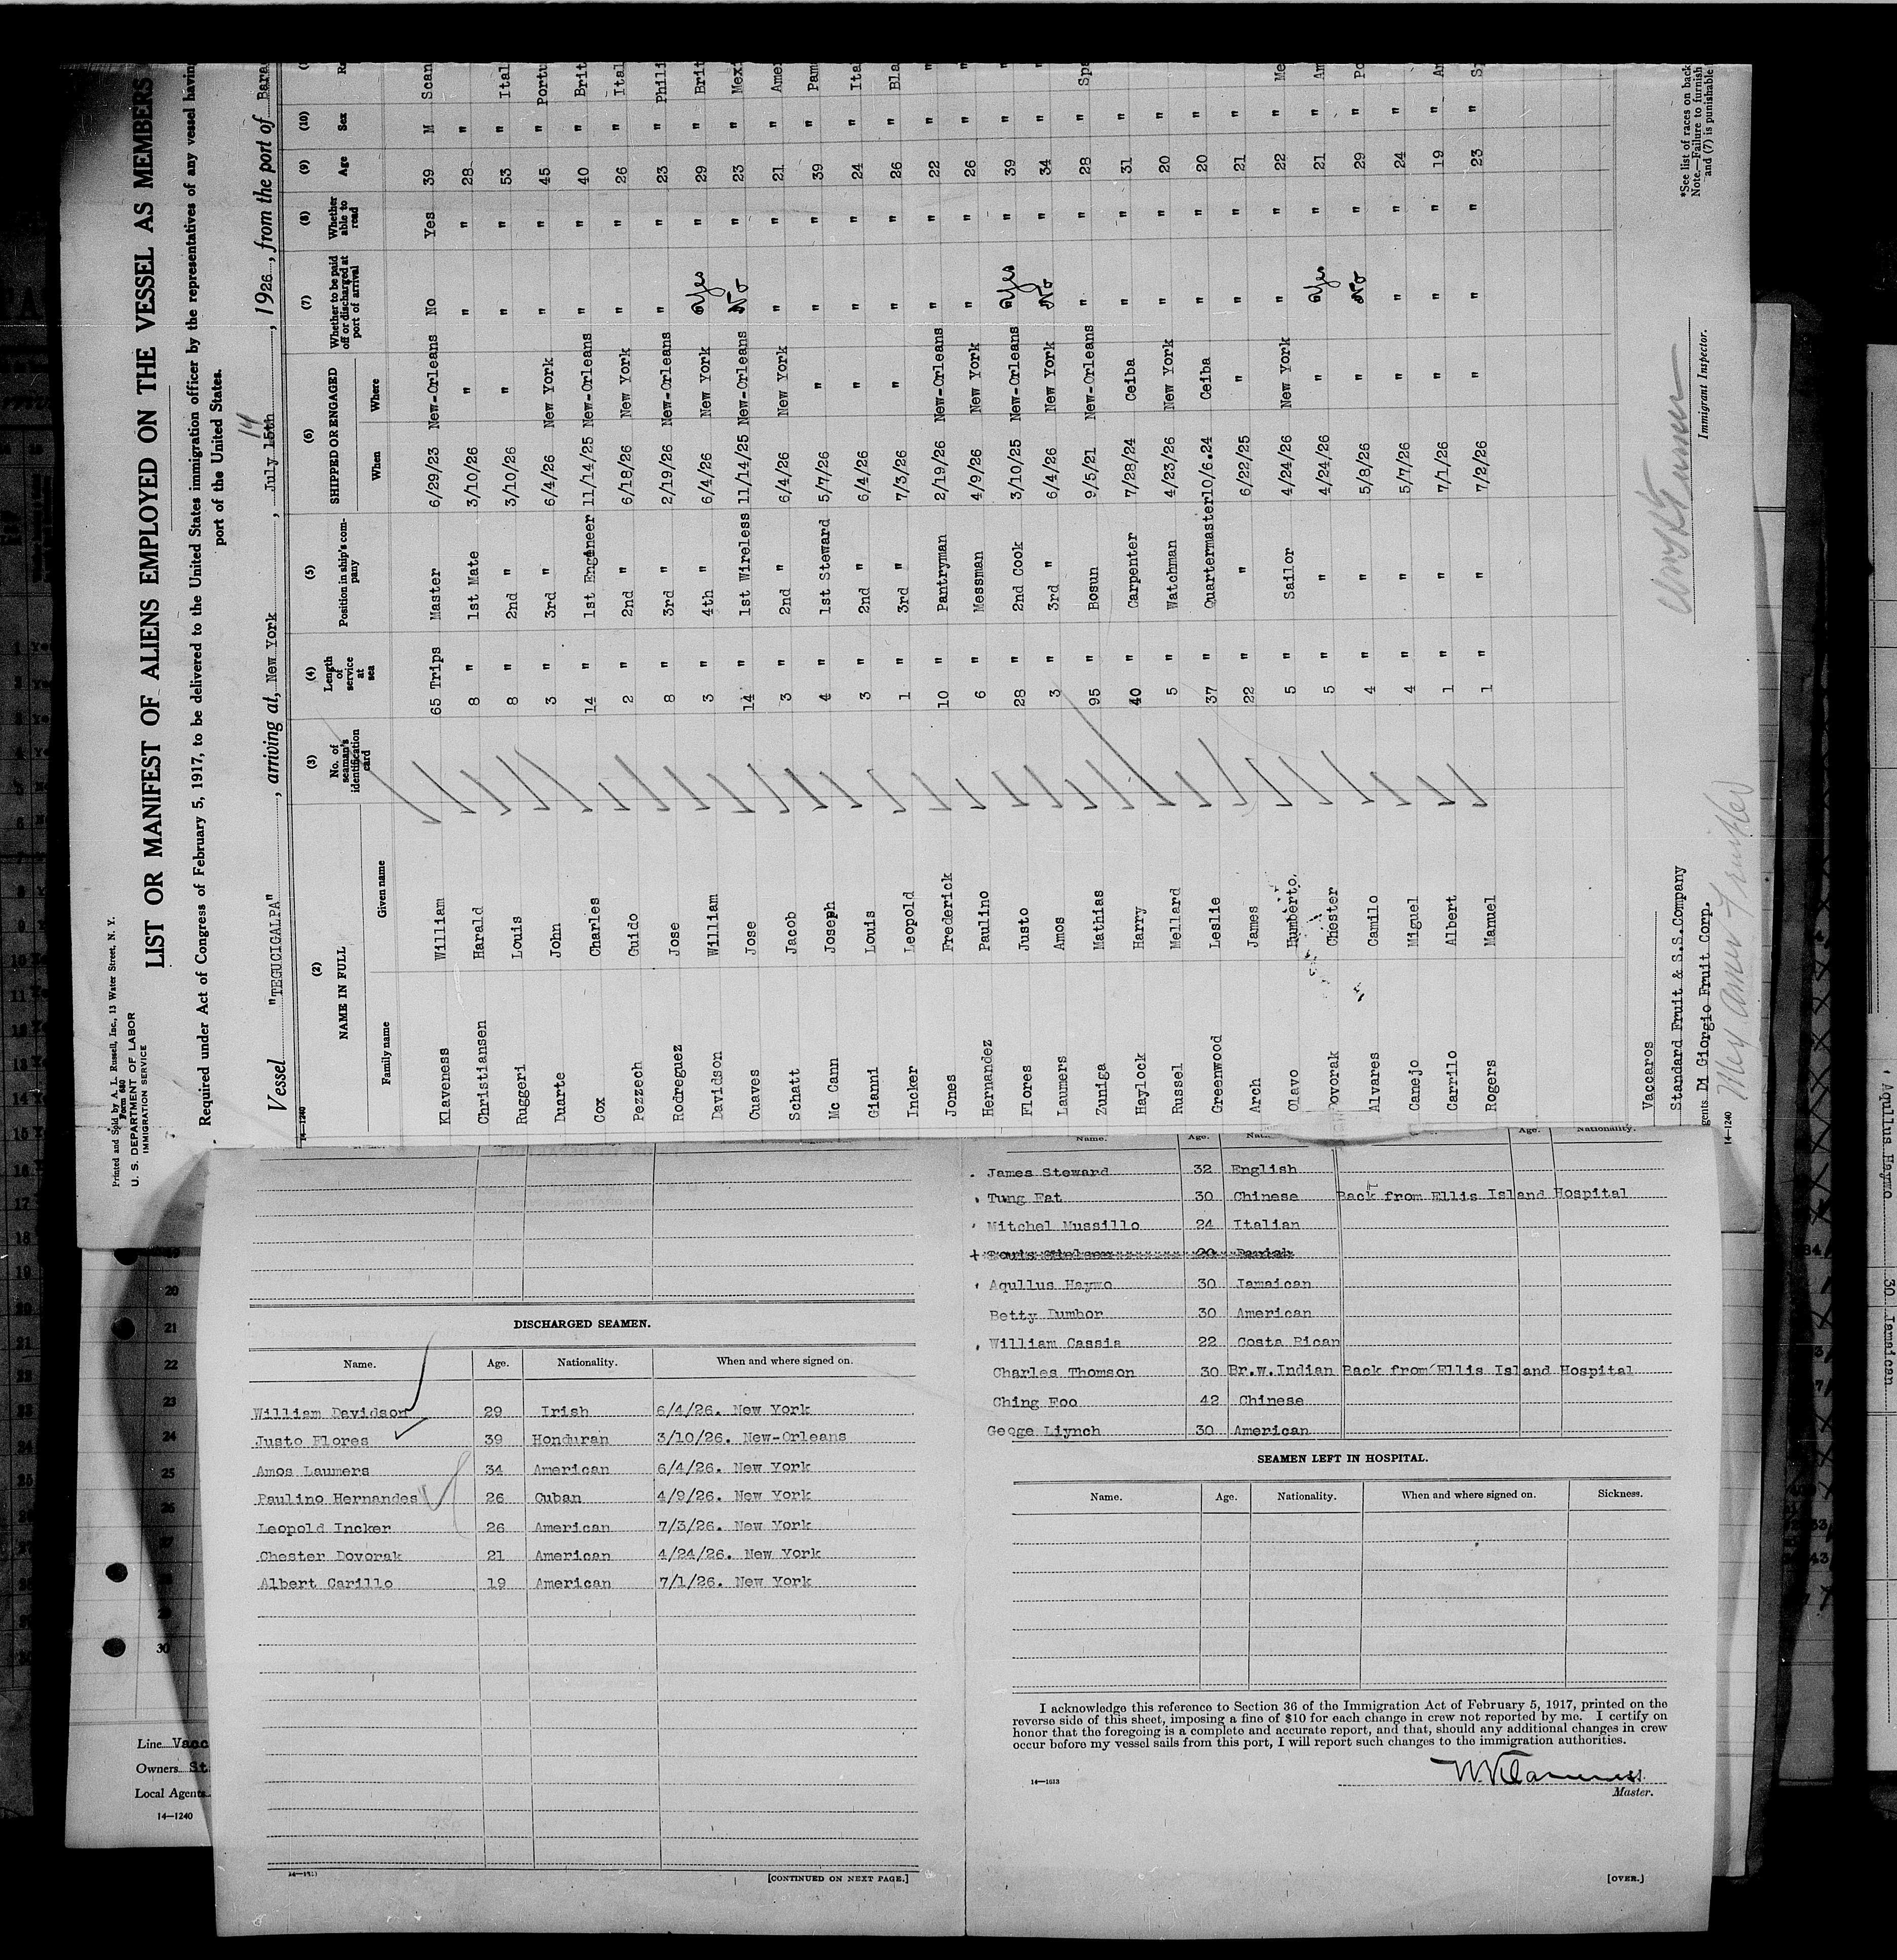 Printed and Sold by A. L. Russell, Inc., 13 Water Street, N. Y.
Form 680
U. S. DEPARTMENT OF LABOR
IMMIGRATION SERVICE
LIST OR MANIFEST OF ALIENS EMPLOYED ON THE VESSEL AS MEMBERS
Required under Act of Congress of February 5, 1917, to be delivered to the United States immigration officer by the representatives of any vessel having
port of the United States.
Vessel "TEGUCIGALPA", arriving at, New York, July 15th 14, 1926, from the port of Bara
14—1240
(2) (3) (4) (5) (6) (7) (8) (9) (10)
NAME IN FULL No. of seaman's identification card Length of service at sea Position in ship's company SHIPPED OR ENGAGED Whether to be paid off or discharged at port of arrival Whether able to read Age Sex Ra
Family name Given name When Where
Klaveness William 65 Trips Master 6/29/23 New-Orleans No Yes 39 M Scan
Christiansen Harald 8 " 1st Mate 3/10/26 " " " 28 "
Ruggeri Louis 8 " 2nd " 3/10/26 " " " 53 " Ital
Duarte John 3 " 3rd " 6/4/26 New York " " 45 " Portu
Cox Charles 14 " 1st Engineer 11/14/25 New-Orleans " " 40 " Brit
Pezzech Guido 2 " 2nd " 6/18/26 New York " " 26 " Ital
Rodreguez Jose 8 " 3rd " 2/19/26 New-Orleans " " 23 " Phili
Davidson William 3 " 4th " 6/4/26 New York Yes " 29 " Brit
Cuaves Jose 14 " 1st Wireless 11/14/25 New-Orleans No " 23 " Mexi
Schatt Jacob 3 " 2nd " 6/4/26 New York " " 21 " Amer
Mc Cann Joseph 4 " 1st Steward 5/7/26 " " " 39 " Pam
Gianni Louis 3 " 2nd " 6/4/26 " " " 24 " Ita
Incker Leopold 1 " 3rd " 7/3/26 " " " 26 " Bla
Jones Frederick 10 " Pantryman 2/19/26 New-Orleans " " 22 " "
Hernandez Paulino 6 " Messman 4/9/26 New York " " 26 " "
Flores Justo 28 " 2nd Cook 3/10/25 New-Orleans Yes " 39 " "
Laumers Amos 3 " 3rd " 6/4/26 New York No " 34 " "
Zuniga Mathias 95 " Bosun 9/5/21 New-Orleans " " 28 " Spa
Haylock Harry 40 " Carpenter 7/28/24 Ceiba " " 31 " "
Russel Mellard 5 " Watchman 4/23/26 New York " " 20 " "
Greenwood Leslie 37 " Quartermaster 10/6.24 Ceiba " " 20 " "
Arch James 22 " " 6/22/25 " " " 21 " "
Olavo Humberto. 5 " Sailor 4/24/26 New York " " 22 " Me
Dovorak Chester 5 " " 4/24/26 " Yes " 21 " Am
Alvares Camilo 4 " " 5/8/26 " No " 29 " Po
Canejo Miguel 4 " " 5/7/26 " " " 24 "
Carrilo Albert 1 " " 7/1/26 " " " 19 " Am
Rogers Manuel 1 " " 7/2/26 " " " 23 " Sp
Vaccaros
Standard Fruit & S.S.Company
gents. Di Giorgio Fruit Corp.
14—1240
Immigrant Inspector.
*See list of races on back
Note.—Failure to furnish
and (7) is punishable
DISCHARGED SEAMEN.
Name. Age. Nationality. When and where signed on.
William Davidson 29 Irish 6/4/26. New York
Justo Flores 39 Honduran 3/10/26. New-Orleans
Amos Laumers 34 American 6/4/26. New York
Paulino Hernandes 26 Cuban 4/9/26. New York
Leopold Incker 26 American 7/3/26. New York
Chester Dovorak 21 American 4/24/26. New York
Albert Carillo 19 American 7/1/26. New York
[CONTINUED ON NEXT PAGE.]
Name. Age. Age. Nationality.
James Steward 32 English
Tung Fat 30 Chinese Back from Ellis Island Hospital
Mitchel Mussillo 24 Italian
Aqullus Haywo 30 Jamaican
Betty Dumbor 30 American
William Cassia 22 Costa Rican
Charles Thomson 30 Br.w.Indian Back from Ellis Island Hospital
Ching Foo 42 Chinese
Geoge Liynch 30 American
SEAMEN LEFT IN HOSPITAL.
Name. Age. Nationality. When and where signed on. Sickness.
I acknowledge this reference to Section 36 of the Immigration Act of February 5, 1917, printed on the
reverse side of this sheet, imposing a fine of $10 for each change in crew not reported by me. I certify on
honor that the foregoing is a complete and accurate report, and that, should any additional changes in crew
occur before my vessel sails from this port, I will report such changes to the immigration authorities.
W. Klaveness
14—1613
Master.
[OVER.]
Line Vacc
Owners St
Local Agents
14—1240
Aqullus Haywo 30 Jamaican